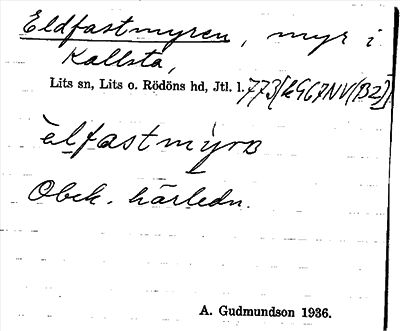 Eldfastmyren, myr i
Kallsta,
Lits sn, Lits o. Rödöns hd, Jtl. l.
èlfastmyrɒ
Obek. härledn.
A. Gudmundson 1936.